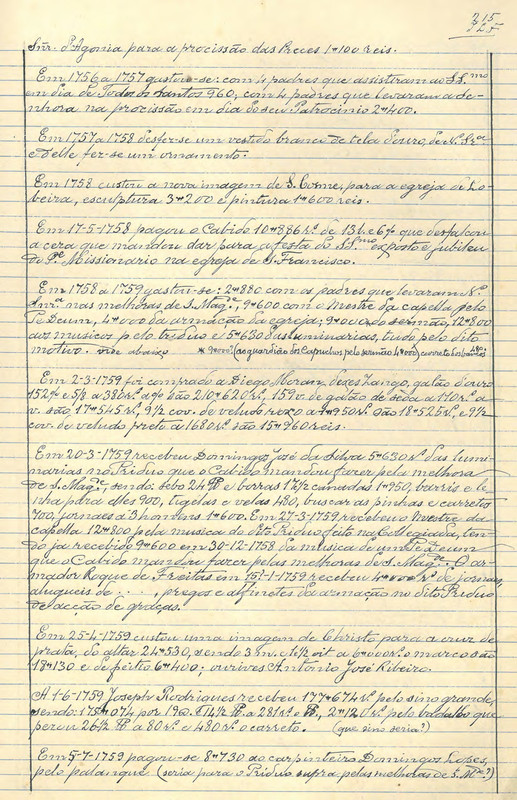 315
325
Snr. d'Agonia para a procissão das Preces 1#100 reis.
Em 1756 a 1757 gastou-se: com 4 padres que assistiram ao SS.mo
em dia de Todos os Santos 960, com 4 padres que levaram a Se-
nhora na procissão em dia do seu Patrocinio 2#400.
Em 1757 a 1758 desfez-se um vestido branco de tela d'ouro, de N. Sr.ª
e d'elle fez-se um ornamento.
Em 1758 custou a nova imagem de S. Cosme, para a egreja de Lo-
beira, esculptura 3#200 e pintura 1#600 reis.
Em 17-5-1758 pagou o Cabido 10#886 r.s de 13 lb. e 6 que desfalcou
a cera que mandou dar para a festa do SS.mo exposto e jubileu
do P.e Missionario na egreja de S. Francisco.
Em 1758 a 1759 gastou-se: 2#880 com os padres que levaram N.
Snr.ª nas melhoras de S. Mag.e, 9#600 com o Mestre da capella pelo
Te Deum, 4#000 da armação da egreja; 9#000 do sermão, 12#800
aos musicos pelo triduo e 5#630 das luminarias, tudo pelo dito
motivo. vide abaixo * 9#000 (ao guardião dos Capuchos pelo sermão 4#000) carreto dos bancos 480.
Em 2-3-1759 foi comprado a Diego Moran, de Xexango, galão d'ouro
152 e 5/8 a 1380 r.s são 210#620 r.s, 159 v. de galão de seda a 110 r.s a
v. são 17#545 r.s, 9 1/2 cov. de veludo roxo a 1#950 r.s são 18#525 r.s, e 9 1/2
cov. de veludo preto a 1680 r.s são 15#960 reis.
Em 20-3-1759 recebeu Domingos José da Silva 5#630 r.s das lumi-
narias no Triduo que o Cabido mandou fazer pela melhora
de S. Mag.e, sendo: sebo 24 lb e borras 17 1/2 canadas 1#950, barris e le-
nha para elles 900, tigelas e velas 480, buscar as pinhas e carreto
700, jornaes a 3 homens 1#600. Em 27-3-1759 recebeu o Mestre da
capella 12#800 pela musica do dito Triduo feito na Collegiada, ten-
do ja recebido 9#600 em 30-12-1758 da musica de um Te Deum
que o Cabido mandou fazer pelas melhoras de S. Mag.e. O ar-
mador Roque de Freitas em 15-1-1759 recebeu 4#000 r.s de jornaes,
alugueis de . . . , pregos e alfinetes da armação no dito Triduo
de acção de graças.
Em 25-4-1759 custou uma imagem de Christo para a cruz de
prata, do altar 24#530, sendo 3 m. e 1 1/2 oit a 6#000 r.s o marco são
18#130 e de feitio 6#400; ourives Antonio José Ribeiro.
A 1-6-1759 Joseph Rodrigues recebeu 177#674 r.s pelo sino grande,
sendo: 175#074 por 19 @ 14 1/2 lb. a 281 r.s e lb, 2#120 r.s pelo badalo que
pesou 26 1/2 lb a 80 r.s e 480 r.s o carreto. (que sino seria?)
Em 5-7-1759 pagou-se 8#730 ao carpinteiro Domingos Lopes,
pelo palanque (seria para o Triduo supra pelas melhoras de S. M.de?)